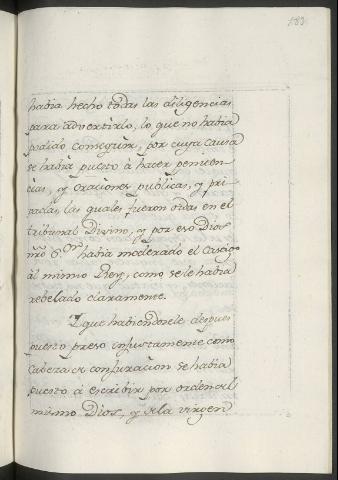 183
havia hecho todas las diligencias
para advertirlo, lo que no havia
podido conseguir, por cuya causa
se havia puesto à hacer peniten-
cias, y oraciones publicas, y pri-
vadas, las quales fueron oidas en el
tribunal Divino, y por eso Dios
nrô S.or havia moderado el castigo
àl mismo Rey, como se le havia
rebelado claramente.
Y que haviendosele despues
puesto preso injustamente como
Cabeza de conjuracion se havia
puesto à escribir por orden del
mismo Dios, y de la virgen